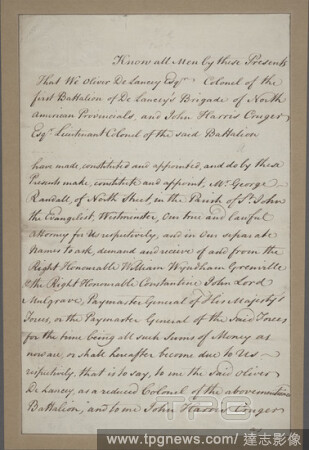 Know all Men by these Presents
That We Oliver De Lancey Esqr. Colonel of the
first Battalion of De Lancey's Brigade of North
American Provincials, and John Harris Conger
Esqr. Lieutenant Colonel of the said Battalion
have made, constituted and appointed, and do by these
Presents make, constitute and appoint, Mr. George
Randall, of North Street, in the Parish of St. John
the Evangelist, Westminster, Our true and lawful
attorney for Us respectively, and in Our separate
Names to ask, demand and receive of and from the
Right Honourable William Wyndham Grenville
& the Right Honourable Constantine John Lord
Mulgrave, Paymaster General of His Majesty's
Forces, or the Paymaster General of the Said Forces
for the time being all such Sums of Money as
now are, or shall hereafter become due to Us
respectively, that is to say, to me the said Oliver
De Lancey, as a reduced Colonel of the abovementioned
Battalion, and to me John Harris Conger
TPG
www.tpgnews.com/達志影像